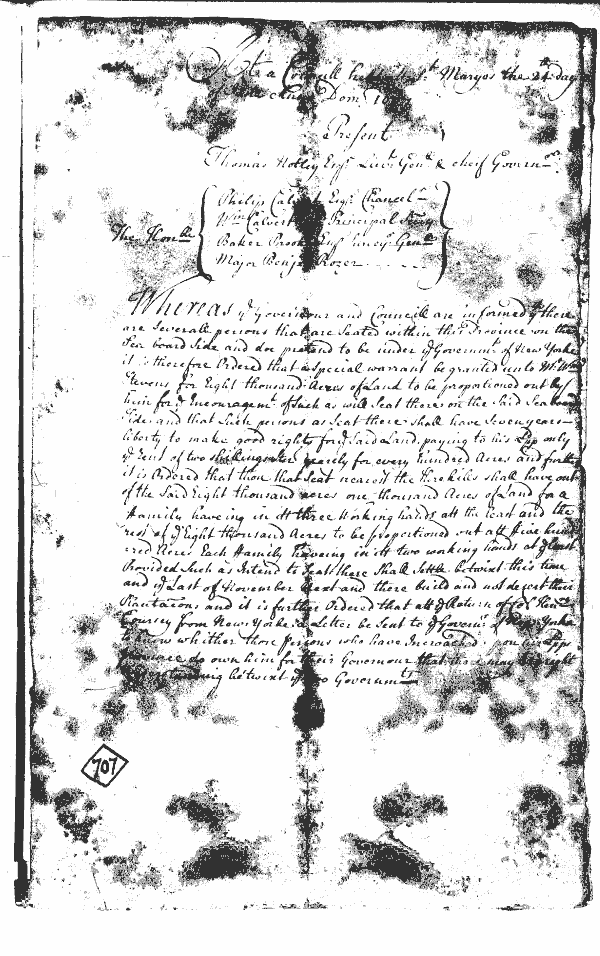 At a Councill held att St Maryes the 24th day
Anno Dom 16
Present
Thomas Notley Esqr Lieut Genll & cheif Governor
Philip Calvert Esqr Chancelr
Wm Calvert Principal Secry
The Honble
Baker Brooke Esqr Genll
Major Benja Rozer
Whereas ye Governour and Councill are informed yt there
are Severall persons that are Seated within this Province on the
Sea board Side and doe pretend to be under ye Governmt of New Yorke
it is therefore Ordered that a Special warrant be granted unto Mr Wm
Stevens for Eight thousand Acres of Land to be proportioned out by
him for ye Encouragemt of Such as will Seat there on the Said Sea board
Side and that Such persons as Seat there shall have Seven years
liberty to make good rights for ye Said Land paying to his Lsp only
ye Rent of two shillings ster yearly for every hundred Acres and further
it is Ordered that thou that Seat nearest the Horekills shall have out
of the Said Eight thousand acres one thousand Acres of Land for a
Family haveing in itt three Working hands att the least and the
rest of ye Eight thousand Acres to be proportioned out att five hund
rred Acres Each Family haveing in itt two working hands at ye least
Provided Such as Intend to Seat there Shall Settle betwixt this time
and ye Last of November Next and there build and not desert their
Plantacons and it is further Ordered that att ye Return of Col Henry
Coursey from New Yorke a Letter be Sent to ye Governr of New Yorke
to know whether those Persons who have Incroached upon his Lpps
Province do own him for their Governour that there may be a right
understanding betwixt ye two Governmts
707